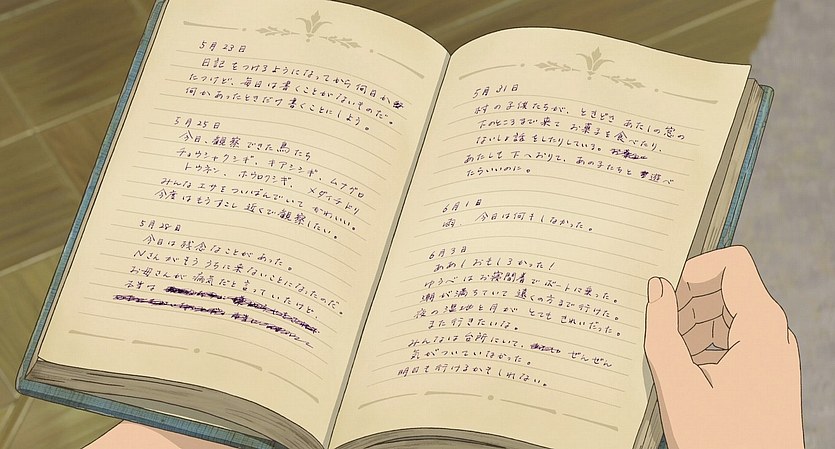 5月23日
日記をつけるようになってから何日か
たつけど、毎日は書くことがないものだ。
何かあったときだけ書くことにしよう。
5月25日
今日、観察できた鳥たち
チュウシャクシギ、キアシシギ、ムナグロ
トウネン、ホウロクシギ、メダイチドリ
みんなエサをついばんでいてかわいい。
今度はもうすこし近くで観察したい。
5月28日
今日は残念なことがあった。
Nさんがもううちに来ないことになったのだ。
お母さんが病気だと言っていたけど、
5月31日
村の子供たちが、ときどきあたしの窓の
下のところまで来てお菓子を食べたり、
ないしょ話をしたりしている。
あたしも下へおりて、あの子たちと遊べ
たらいいのに。
6月1日
雨 今日は何もしなかった。
6月3日
ああ!おもしろかった!
ゆうべはお寝間着でボートに乗った。
潮が満ちていて遠くの方まで行けた。
夜の湿地と月がとてもきれいだった。
また行きたいな。
みんな台所にいて、ぜんぜん
気がついていなかった。
明日も行けるかもしれない。